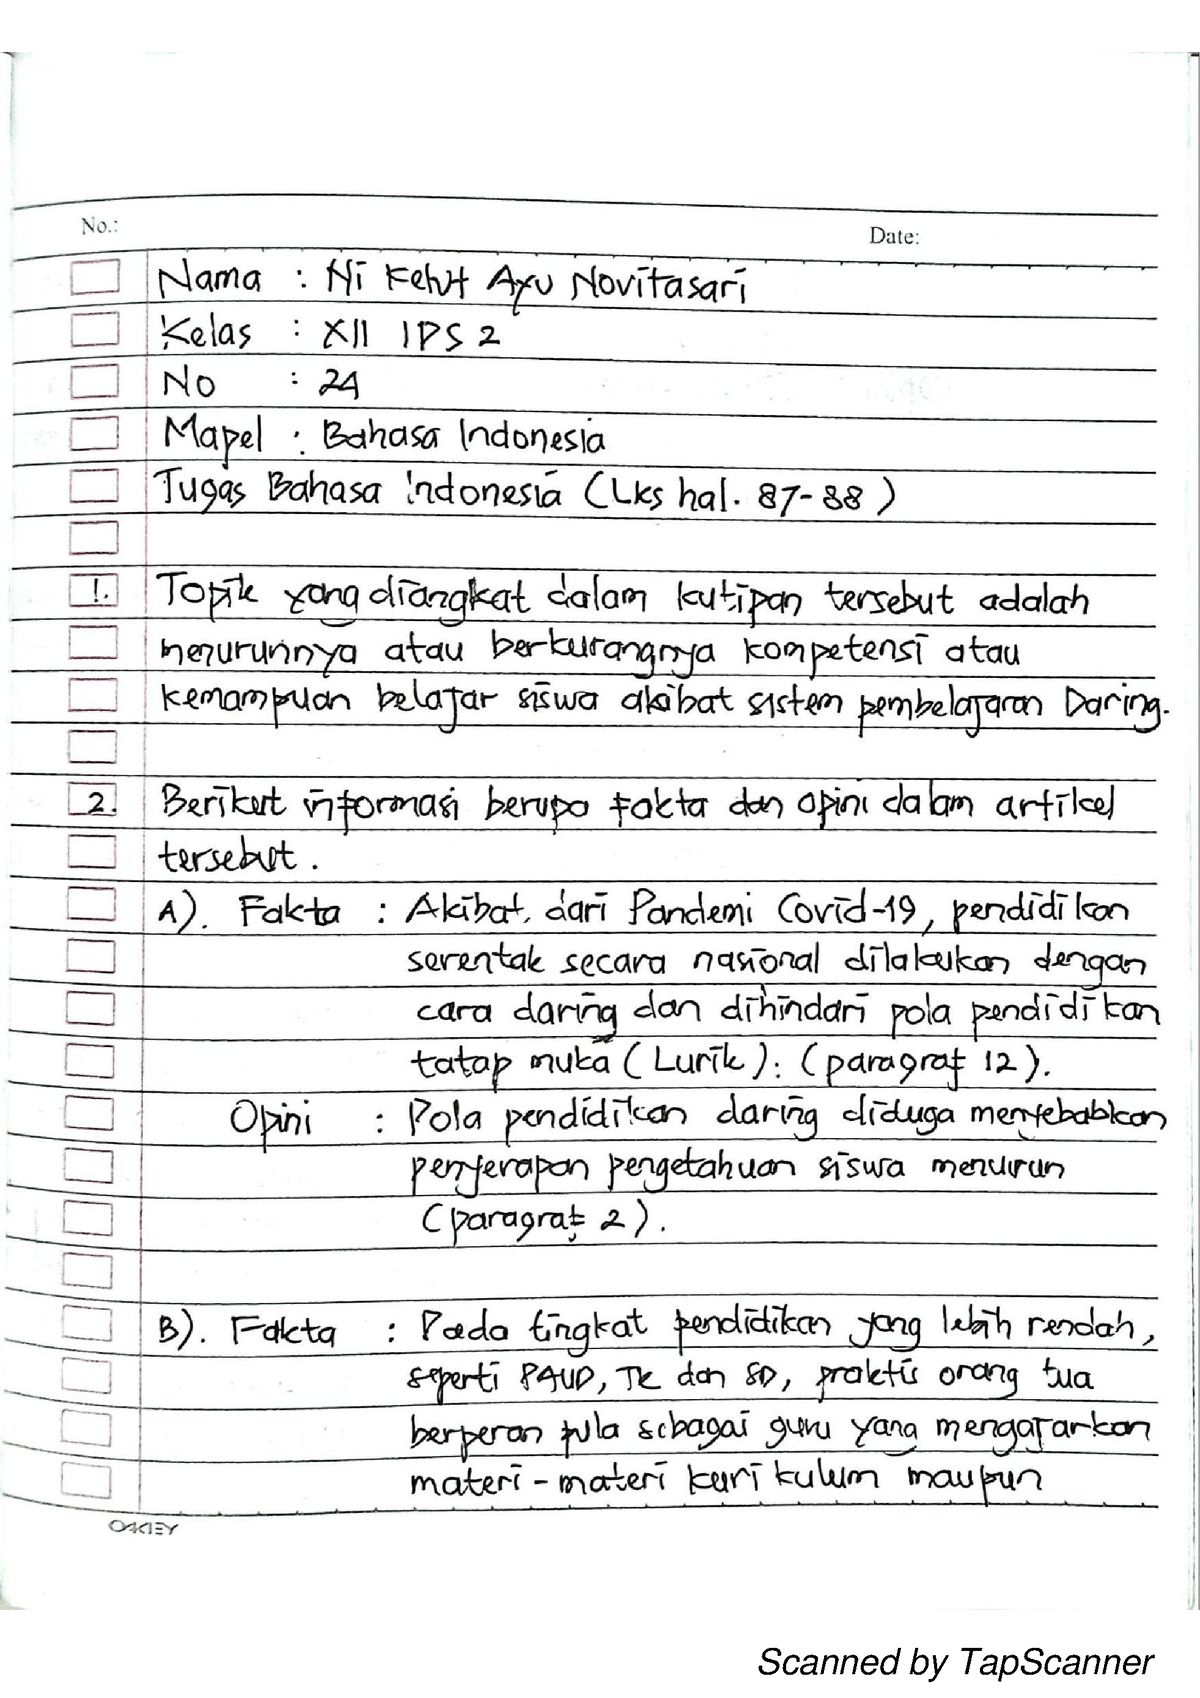 No.:
Date:
Nama : Ni Ketut Ayu Novitasari
Kelas : XII IPS 2
No : 24
Mapel : Bahasa Indonesia
Tugas Bahasa Indonesia (Lks hal. 87-88)
1. Topik yang diangkat dalam kutipan tersebut adalah
menurunnya atau berkurangnya kompetensi atau
kemampuan belajar siswa akibat sistem pembelajaran Daring.
2. Berikut informasi berupa fakta dan opini dalam artikel
tersebut.
A). Fakta : Akibat dari Pandemi Covid-19, pendidikan
serentak secara nasional dilakukan dengan
cara daring dan dihindari pola pendidikan
tatap muka (Lurik). (paragraf 12).
Opini : Pola pendidikan daring diduga menyebabkan
penyerapan pengetahuan siswa menurun
(paragraf 2).
B). Fakta : Pada tingkat pendidikan yang lebih rendah,
seperti PAUD, TK dan SD, praktis orang tua
berperan pula sebagai guru yang mengajarkan
materi-materi kurikulum maupun
OAKLEY
Scanned by TapScanner